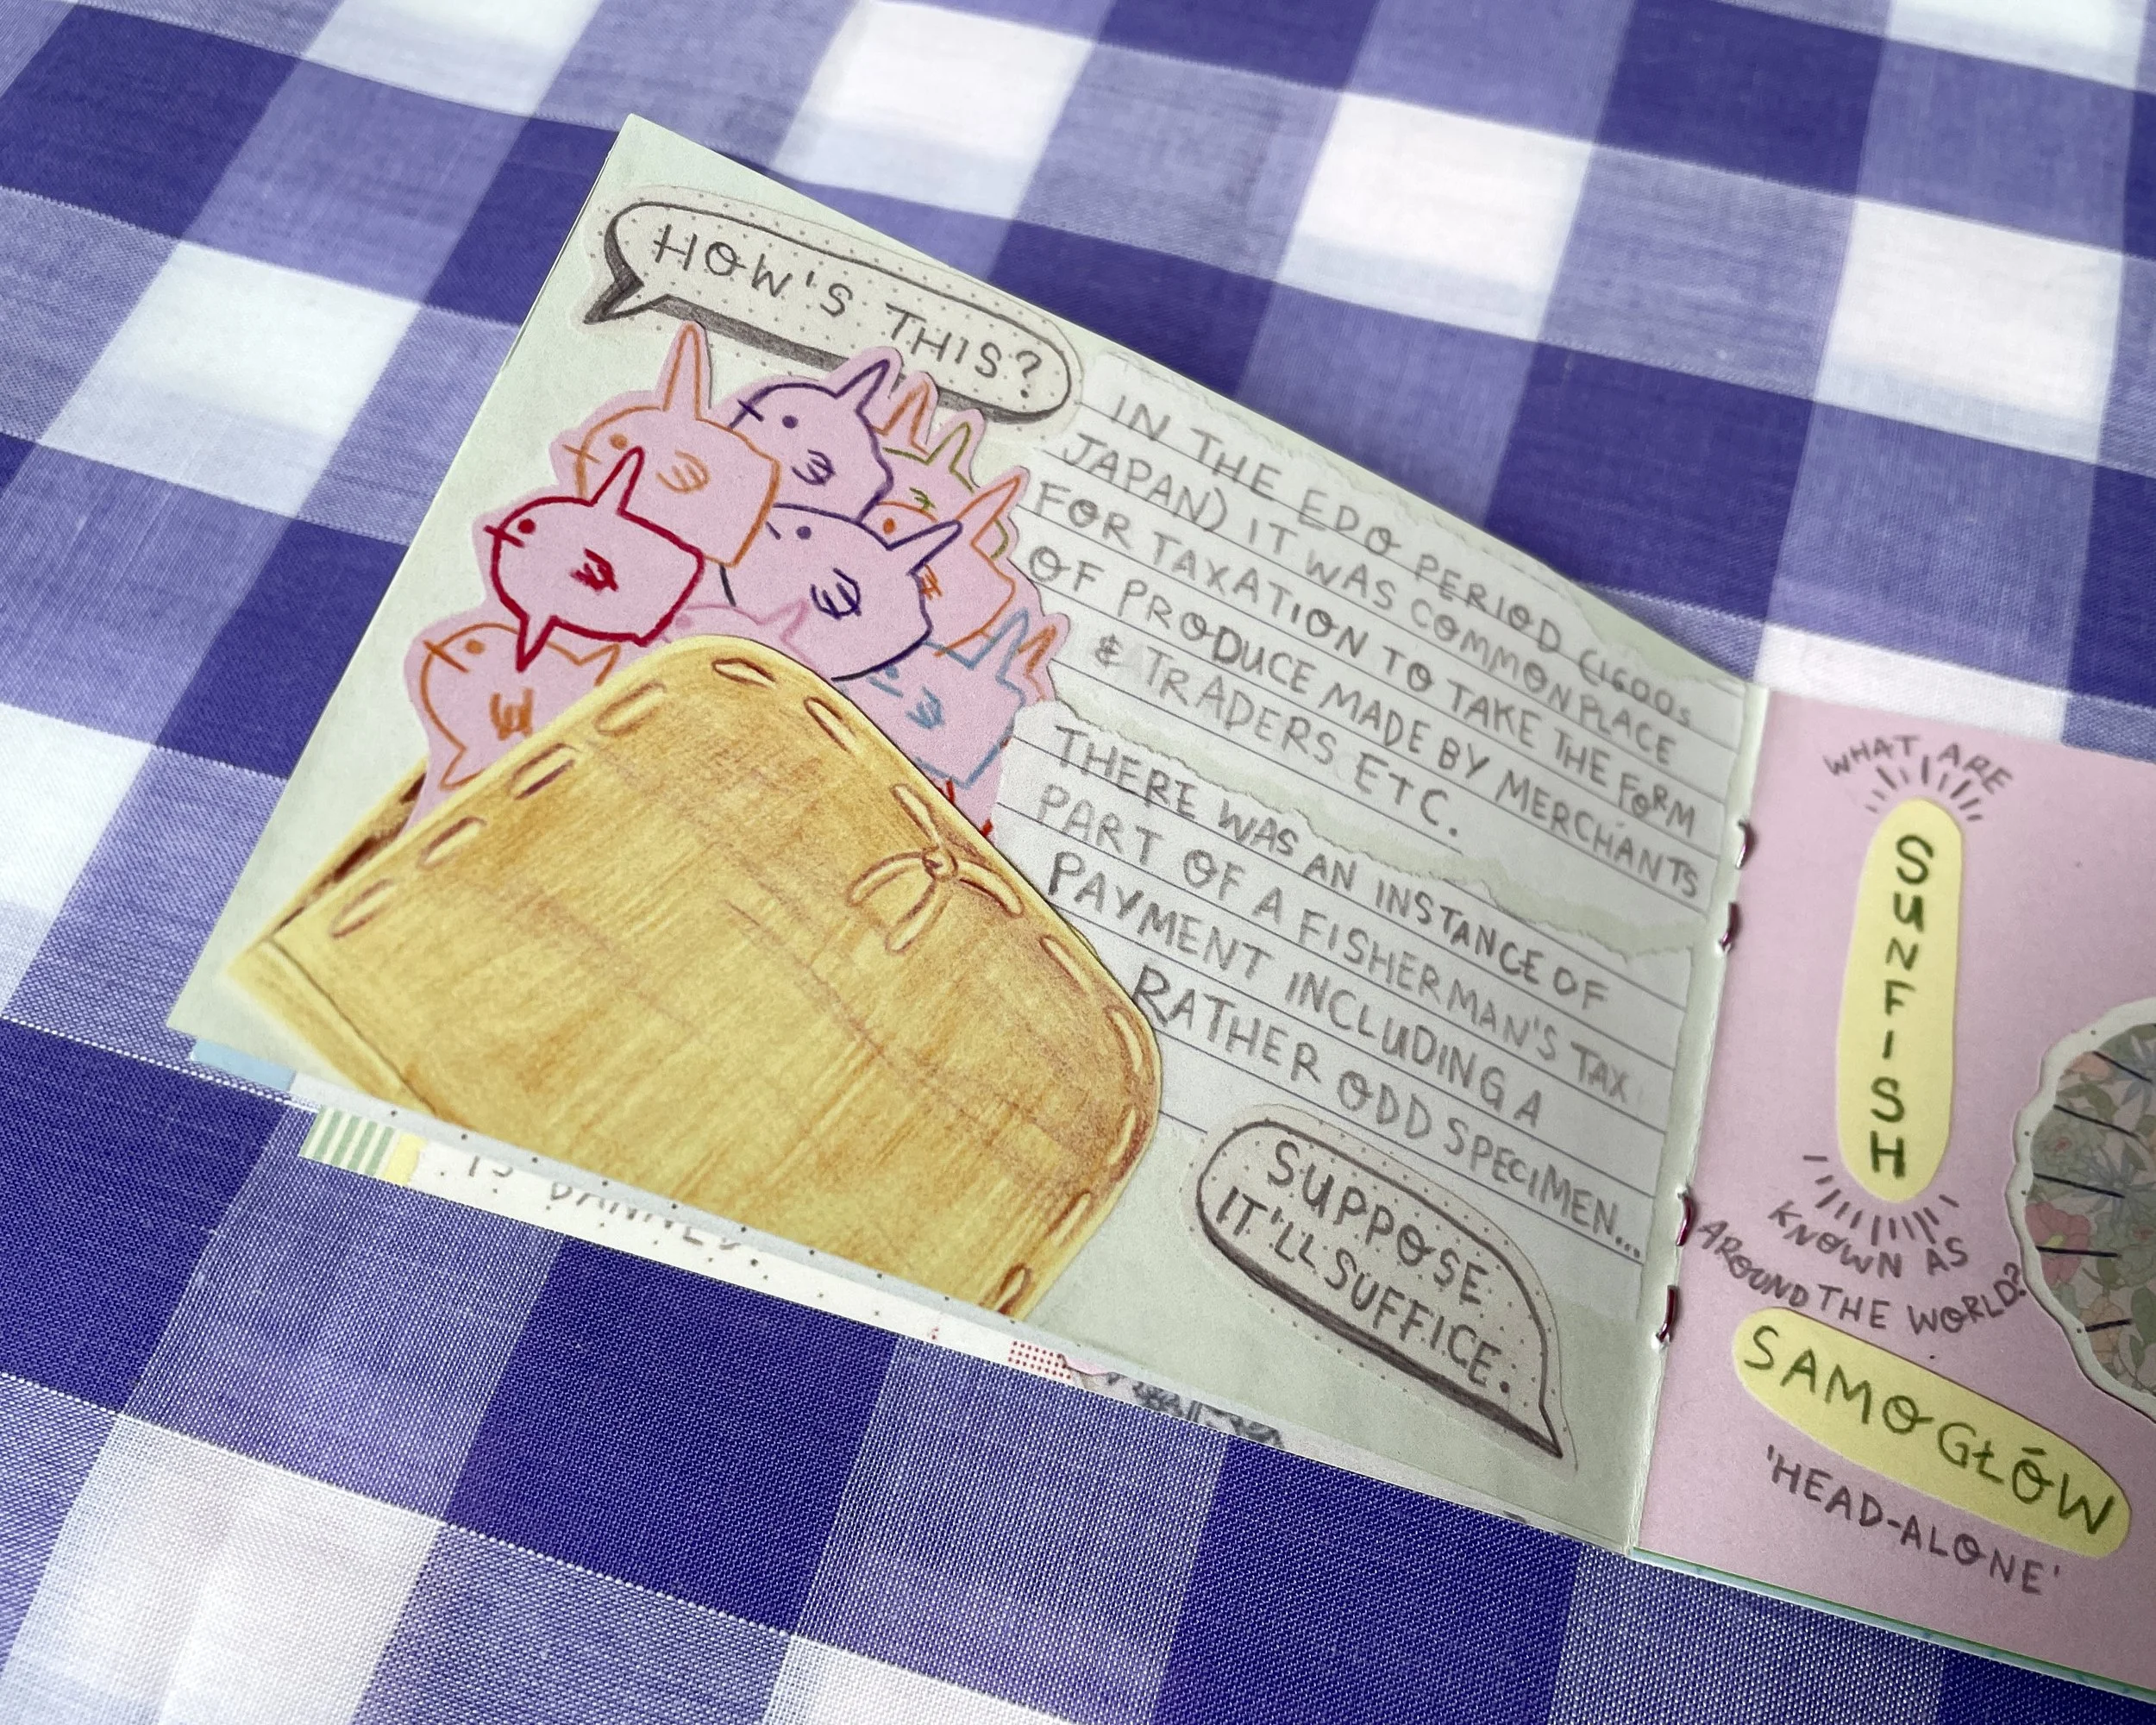 HOW'S THIS?
IN THE EDO PERIOD (1600s
JAPAN) IT WAS COMMONPLACE
FOR TAXATION TO TAKE THE FORM
OF PRODUCE MADE BY MERCHANTS
& TRADERS ETC.
THERE WAS AN INSTANCE OF
PART OF A FISHERMAN'S TAX
PAYMENT INCLUDING A
RATHER ODD SPECIMEN...
SUPPOSE
IT'LL SUFFICE.
IS BANNED.
WHAT ARE
SUNFISH
KNOWN AS
AROUND THE WORLD?
SAMOGŁÓW
'HEAD-ALONE'